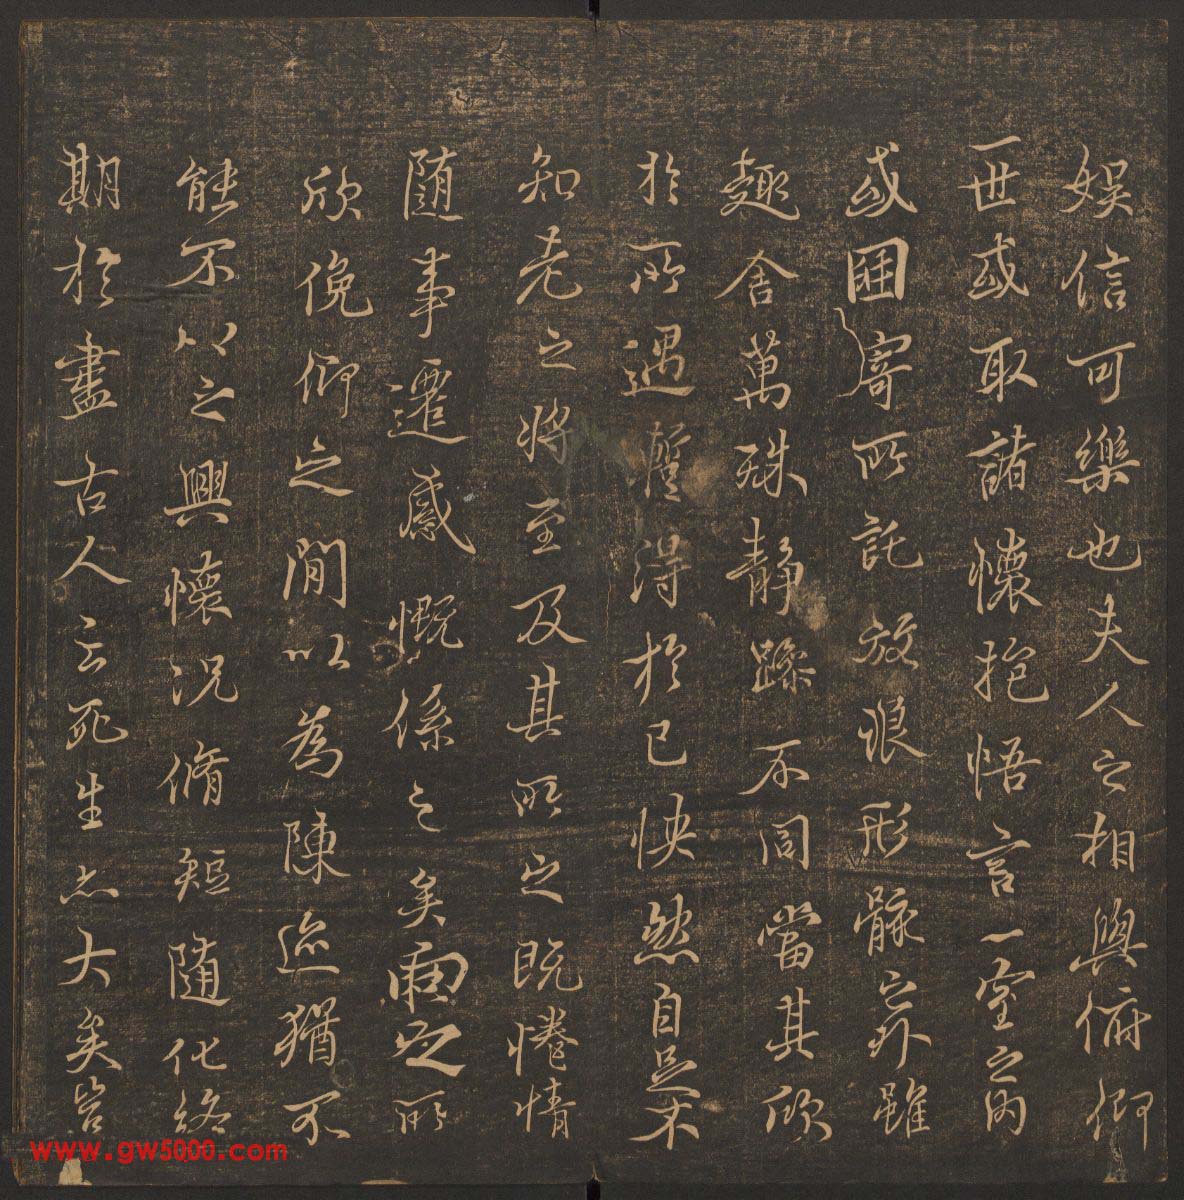 娛信可樂也夫人之相與俯仰
一世或取諸懷抱悟言一室之內
或因寄所託放浪形骸之外雖
趣舍萬殊靜躁不同當其欣
於所遇蹔得於己快然自足不
知老之將至及其所之既惓情
隨事遷感慨係之矣向之所
欣俛仰之閒以為陳迹猶不
能不以之興懷況脩短隨化終
期於盡古人云死生亦大矣豈
www.gw5000.com